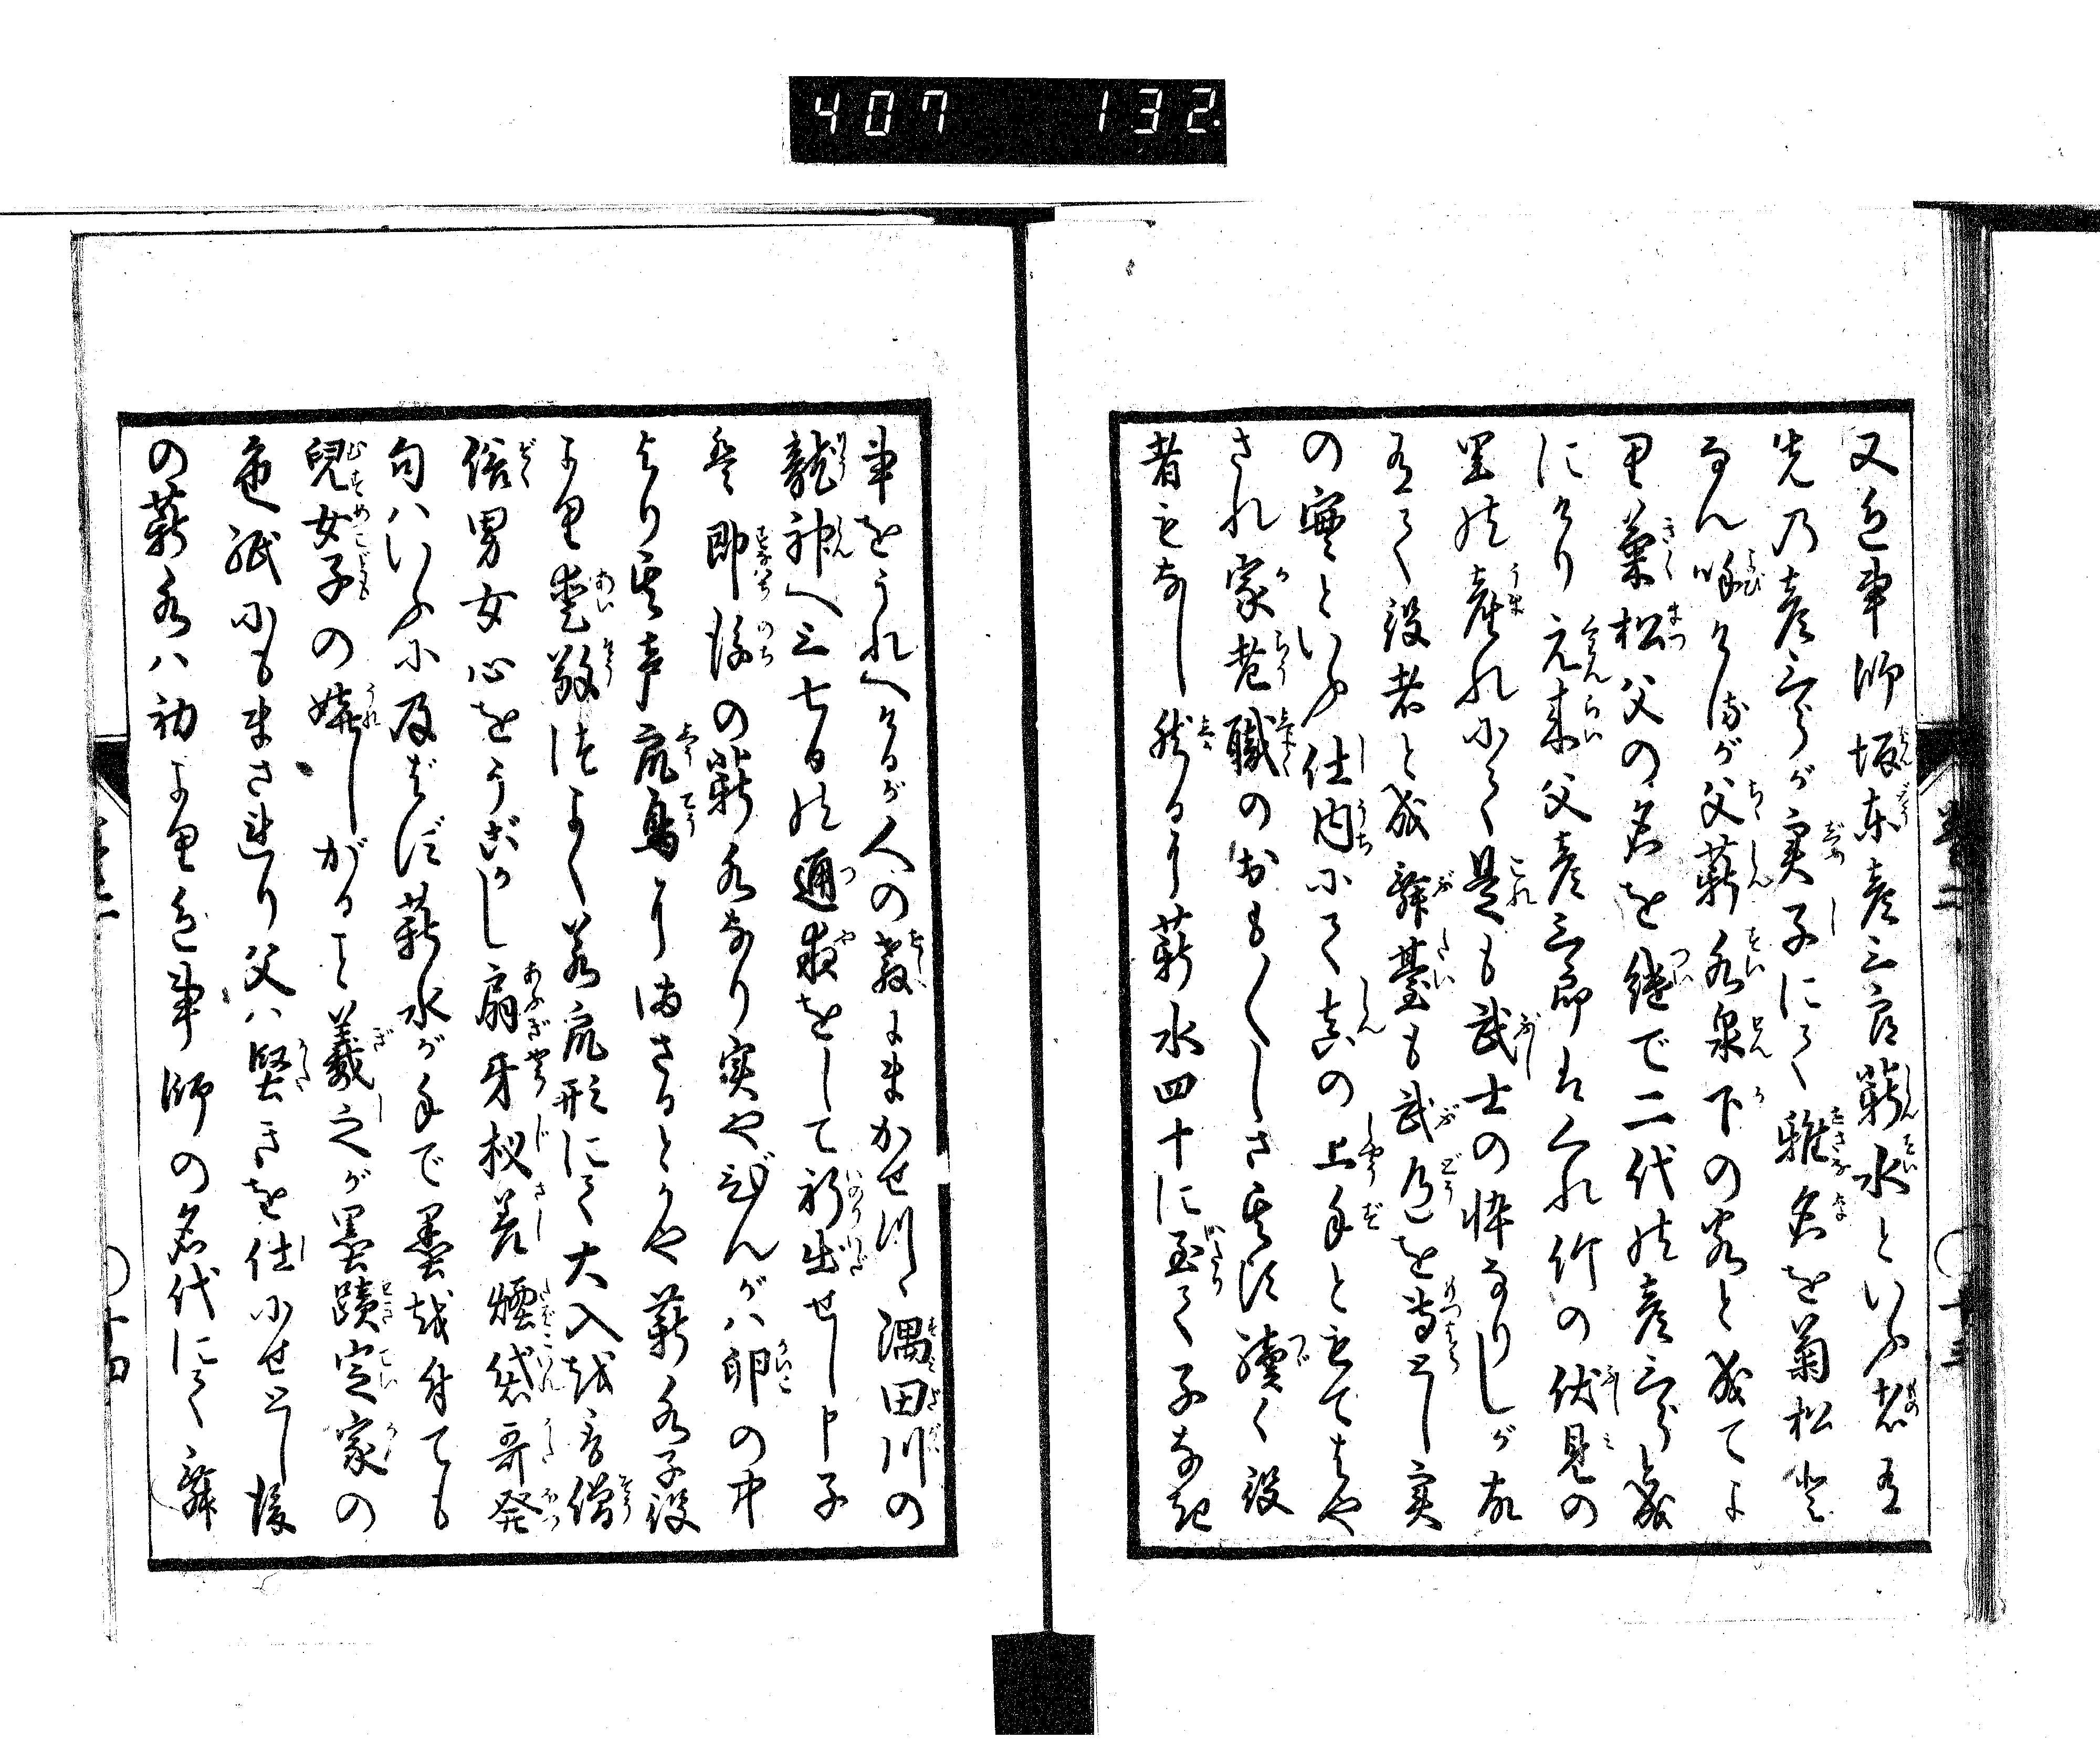 407 132.
又色事師坂東彦三郎薪水といふ者有
先乃彦三郎が実子にて雅名を菊松と
なん呼けるが父薪水泉下の客と成てよ
里菊松父の名を継で二代の彦三郎と成
にけり元来父彦三郎はくれ竹の伏見の
里の産れにて是も武士の忰なりしが故
有て役者と成舞臺も武道を専とし実
の実といふ仕内にて真の上手ともてはや
され家老職のおも〱しさ其頃續く役
者もなし然るに薪水四十に至て子なき
事をうれへけるが人の教にまかせ川〻隅田川の
龍神へ三七日の通夜をして祈出せし申子
是即後の薪水なり実やびんが八卵の中
より其声鳥にまさるとかや薪水子役
より愛敬つよく若形にて大入を取僧
俗男女心をうごかし扇牙杖差煙袋哥発
句ハいふに及ばず薪水が手で墨を付ても
兒女子の嬉しがる事義之が墨蹟定家の
色紙にもまされり父ハ堅きを仕にせとし後
の薪水ハ初より色事師の名代にて舞
巻二
十三
十四